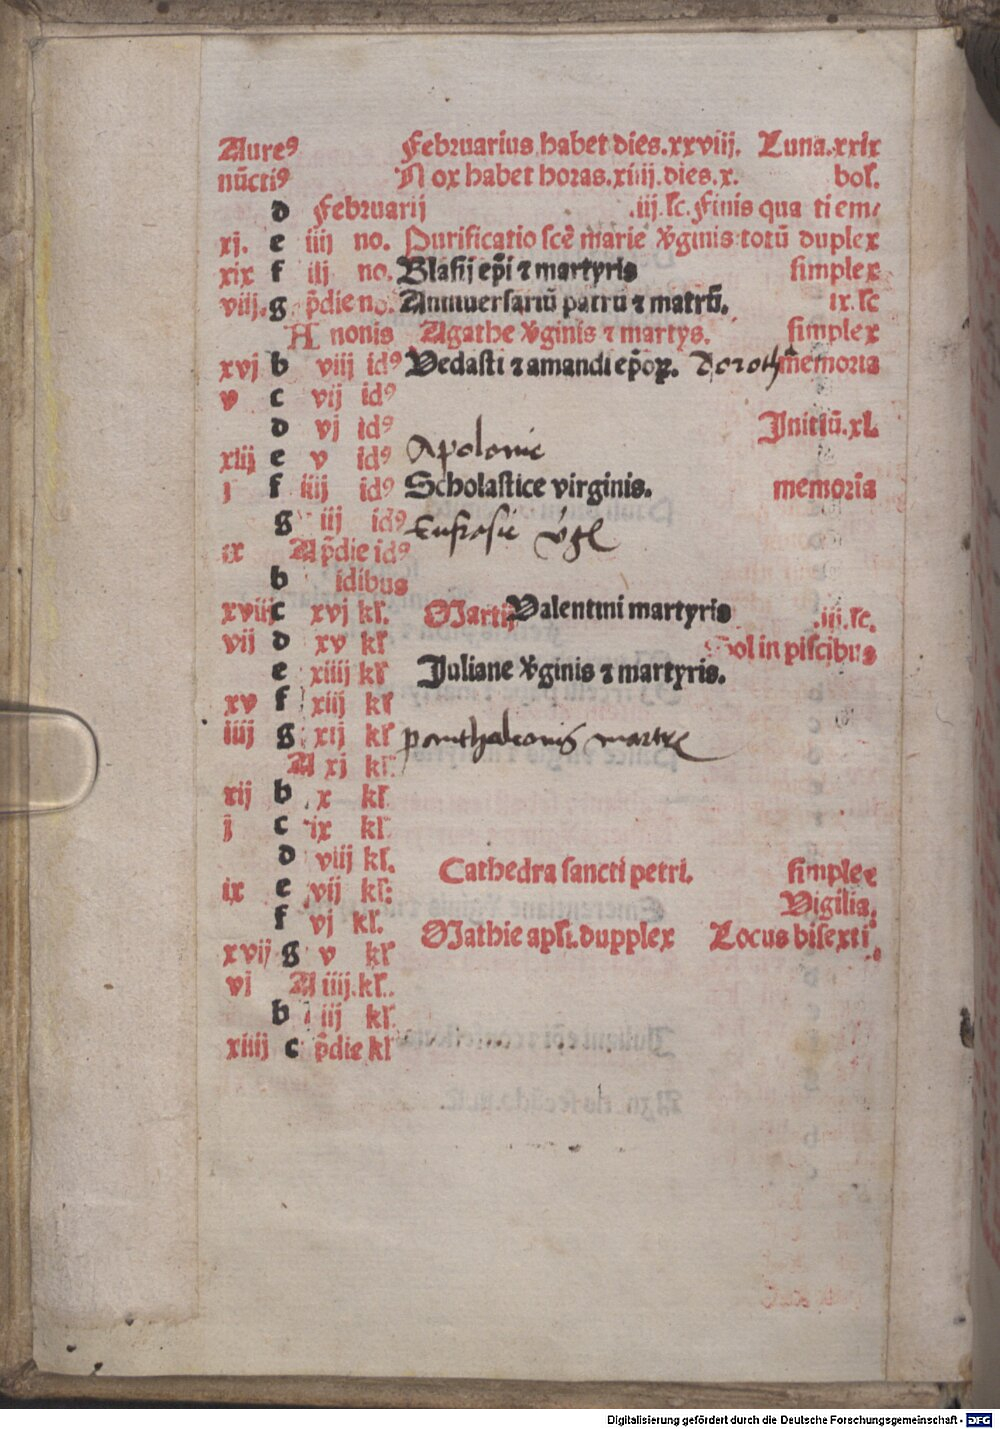 Aureꝰ Februarius habet dies.xxviij. Luna.xxix
nūctiꝰ Nox habet horas.xiiij.dies.x. hoꝛ.
d Februarij .iij.lc. Finis qua tiem/
xj. e iiij no. Purificatio scē marie v̄ginis totū duplex
xix f iij no. Blasij ep̄i ⁊ martyris simplex
viij. g p̄die no. Anniuersariū patrū ⁊ matrū. ix. lc
A nonis Agathe v̄ginis ⁊ martys. simplex
xvj b viij idꝰ Vedasti ⁊ amandi ep̄oꝝ. Doroth memoria
v c vij idꝰ
d vj idꝰ Initiū.xL
xiij e v idꝰ Apolonie
j f iiij idꝰ Scholastice virginis. memoria
g iij idꝰ Eufrasie v̄gī
ix A p̄die idꝰ
b idibus
xviij c xvj kl. Martij Valentini martyris .iij.lc.
vij d xv kl Sol in piscibus
e xiiij kl Juliane v̄ginis ⁊ martyris.
xv f xiij kl
iiij g xij kl panthaleonis martir
A xj kl.
xij b x kl
j c ix kl
d viij kl. Cathedra sancti petri. simplex
ix e vij kl: Vigilia.
f vj kl. Mathie apli.dupplex Locus bisexti
xvij g v kl
vi A iiij.kl.
b iij kl.
xiiij c p̄die kl
Digitalisierung gefördert durch die Deutsche Forschungsgemeinschaft - DFG